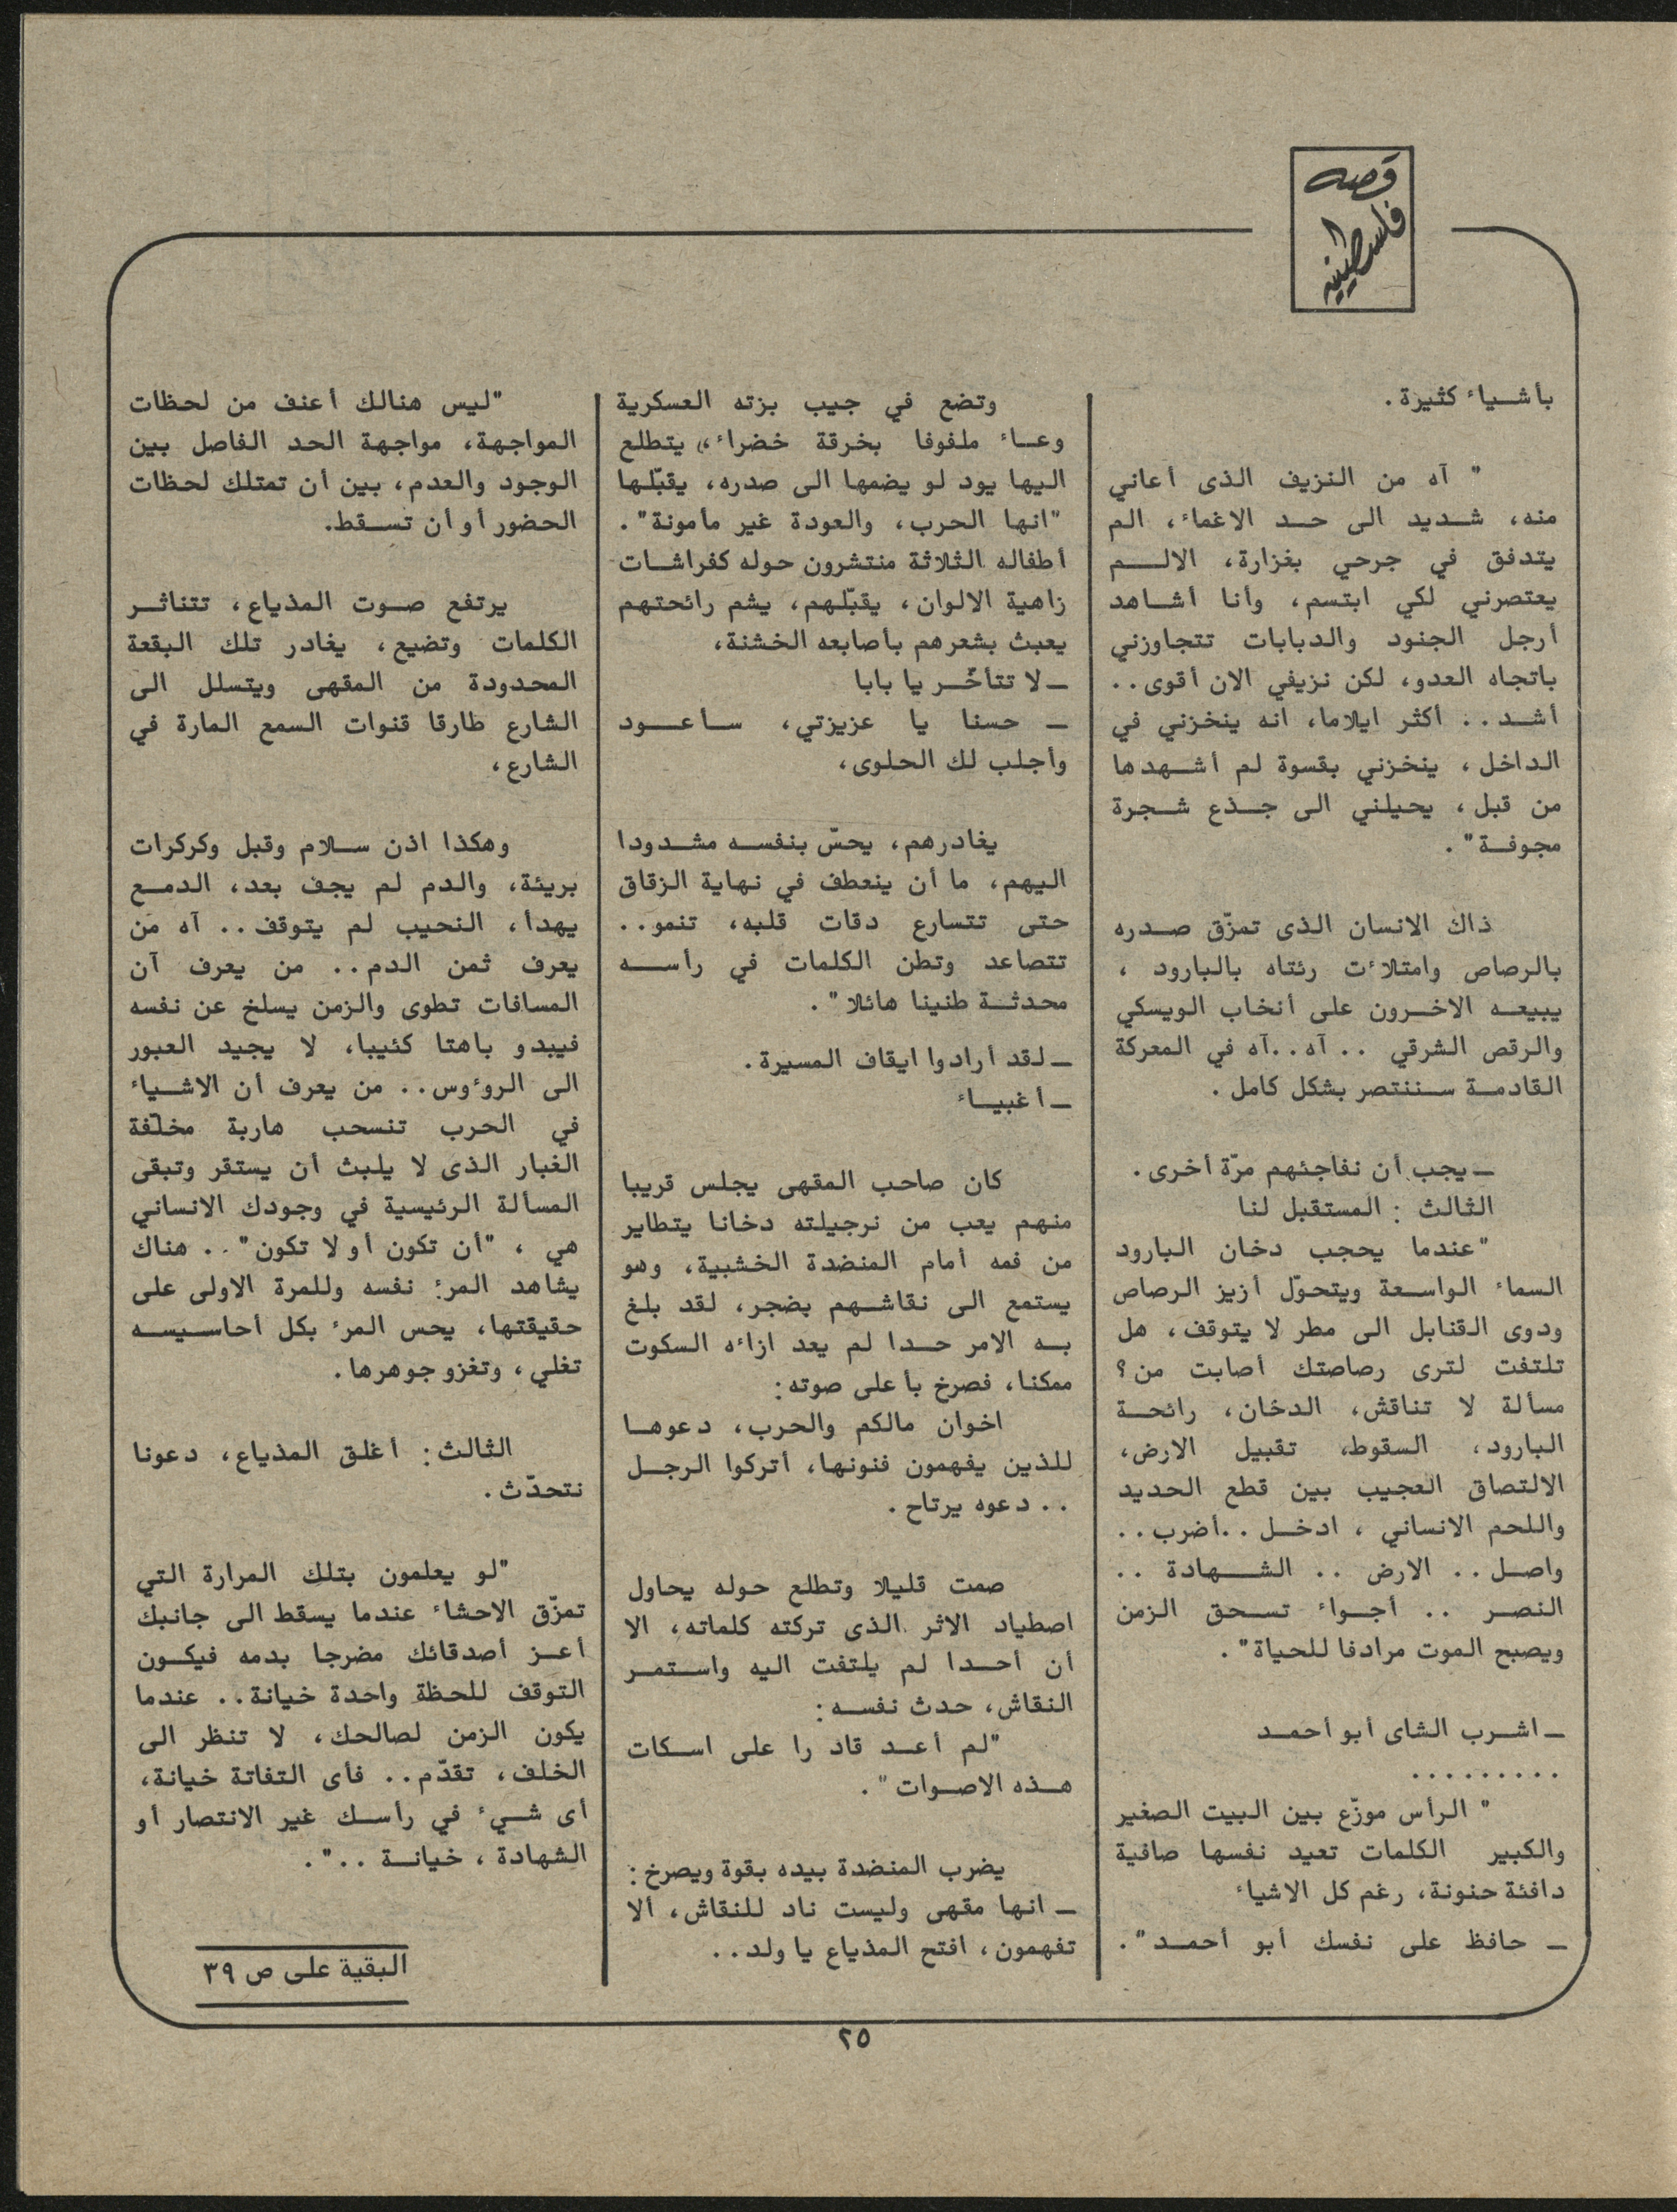 قصه
فلسطينيه
بأشياء كثيرة.
" آه من النزيف الذى أعاني
منه، شديد الى حد الاغماء، الم
يتدفق في جرحي بغزارة، الالم
يعتصرني لكي ابتسم، وأنا أشاهد
أرجل الجنود والدبابات تتجاوزني
باتجاه العدو، لكن نزيفي الان أقوى..
أشد.. أكثر ايلاما، انه ينخزني في
الداخل، ينخزني بقسوة لم أشهدها
من قبل، يحيلني الى جذع شجرة
مجوفة".
ذاك الانسان الذى تمزّق صدره
بالرصاص وامتلاءت رئتاه بالبارود ،
يبيعه الاخرون على أنخاب الويسكي
والرقص الشرقي .. آه..آه في المعركة
القادمة سننتصر بشكل كامل.
ـ يجب أن نفاجئهم مرّة أخرى.
الثالث : المستقبل لنا
"عندما يحجب دخان البارود
السماء الواسعة ويتحوّل أزيز الرصاص
ودوى القنابل الى مطر لا يتوقف، هل
تلتفت لترى رصاصتك أصابت من؟
مسألة لا تناقش، الدخان، رائحة
البارود، السقوط، تقبيل الارض،
الالتصاق العجيب بين قطع الحديد
واللحم الانساني ، ادخل ..أضرب..
واصل.. الارض .. الشهادة ..
النصر .. أجواء تسحق الزمن
ويصبح الموت مرادفا للحياة".
ـ اشرب الشاى أبو أحمد
.........
" الرأس موزّع بين البيت الصغير
والكبير الكلمات تعيد نفسها صافية
دافئة حنونة، رغم كل الاشياء
ـ حافظ على نفسك أبو أحمد".
وتضع في جيب بزته العسكرية
وعاء ملفوفا بخرقة خضراء، يتطلع
اليها يود لو يضمها الى صدره، يقبّلها
"انها الحرب، والعودة غير مأمونة".
أطفاله الثلاثة منتشرون حوله كفراشات
زاهية الالوان، يقبّلهم، يشم رائحتهم
يعبث بشعرهم بأصابعه الخشنة،
ـ لا تتأخّر يا بابا
ـ حسنا يا عزيزتي، سأعود
وأجلب لك الحلوى،
يغادرهم، يحسّ بنفسه مشدودا
اليهم، ما أن ينعطف في نهاية الزقاق
حتى تتسارع دقات قلبه، تنمو..
تتصاعد وتطن الكلمات في رأسه
محدثة طنينا هائلا".
ـ لقد أرادوا ايقاف المسيرة.
ـ أغبياء
كان صاحب المقهى يجلس قريبا
منهم يعب من نرجيلته دخانا يتطاير
من فمه أمام المنضدة الخشبية، وهو
يستمع الى نقاشهم بضجر، لقد بلغ
به الامر حدا لم يعد ازاءه السكوت
ممكنا، فصرخ بأعلى صوته:
اخوان مالكم والحرب، دعوها
للذين يفهمون فنونها، أتركوا الرجل
.. دعوه يرتاح.
صمت قليلا وتطلع حوله يحاول
اصطياد الاثر الذى تركته كلماته، الا
أن أحدا لم يلتفت اليه واستمر
النقاش، حدث نفسه:
"لم أعد قادرا على اسكات
هذه الاصوات".
يضرب المنضدة بيده بقوة ويصرخ:
ـ انها مقهى وليست ناد للنقاش، ألا
تفهمون، افتح المذياع يا ولد..
"ليس هنالك أعنف من لحظات
المواجهة، مواجهة الحد الفاصل بين
الوجود والعدم، بين أن تمتلك لحظات
الحضور أو أن تسقط.
يرتفع صوت المذياع، تتناثر
الكلمات وتضيع، يغادر تلك البقعة
المحدودة من المقهى ويتسلل الى
الشارع طارقا قنوات السمع المارة في
الشارع،
وهكذا اذن سلام وقبل وكركرات
بريئة، والدم لم يجف بعد، الدمع
يهدأ، النحيب لم يتوقف.. آه من
يعرف ثمن الدم.. من يعرف آن
المسافات تطوى والزمن يسلخ عن نفسه
فيبدو باهتا كئيبا، لا يجيد العبور
الى الروءوس.. من يعرف أن الاشياء
في الحرب تنسحب هاربة مخلّفة
الغبار الذى لا يلبث أن يستقر وتبقى
المسألة الرئيسية في وجودك الانساني
هي ، "أن تكون أو لا تكون".. هناك
يشاهد المرء نفسه وللمرة الاولى على
حقيقتها، يحس المرء بكل أحاسيسه
تغلي، وتغزو جوهرها.
الثالث: أغلق المذياع، دعونا
نتحدّث.
"لو يعلمون بتلك المرارة التي
تمزّق الاحشاء عندما يسقط الى جانبك
أعز أصدقائك مضرجا بدمه فيكون
التوقف للحظة واحدة خيانة.. عندما
يكون الزمن لصالحك، لا تنظر الى
الخلف، تقدّم.. فأى التفاتة خيانة،
أى شيء في رأسك غير الانتصار أو
الشهادة ، خيانة ..".
البقية على ص ٣٩
٢٥